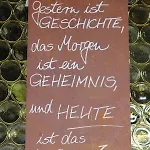 gestern ist
GESCHICHTE,
das Morgen
ist ein
GEHEIMNIS,
und HEUTE
ist das